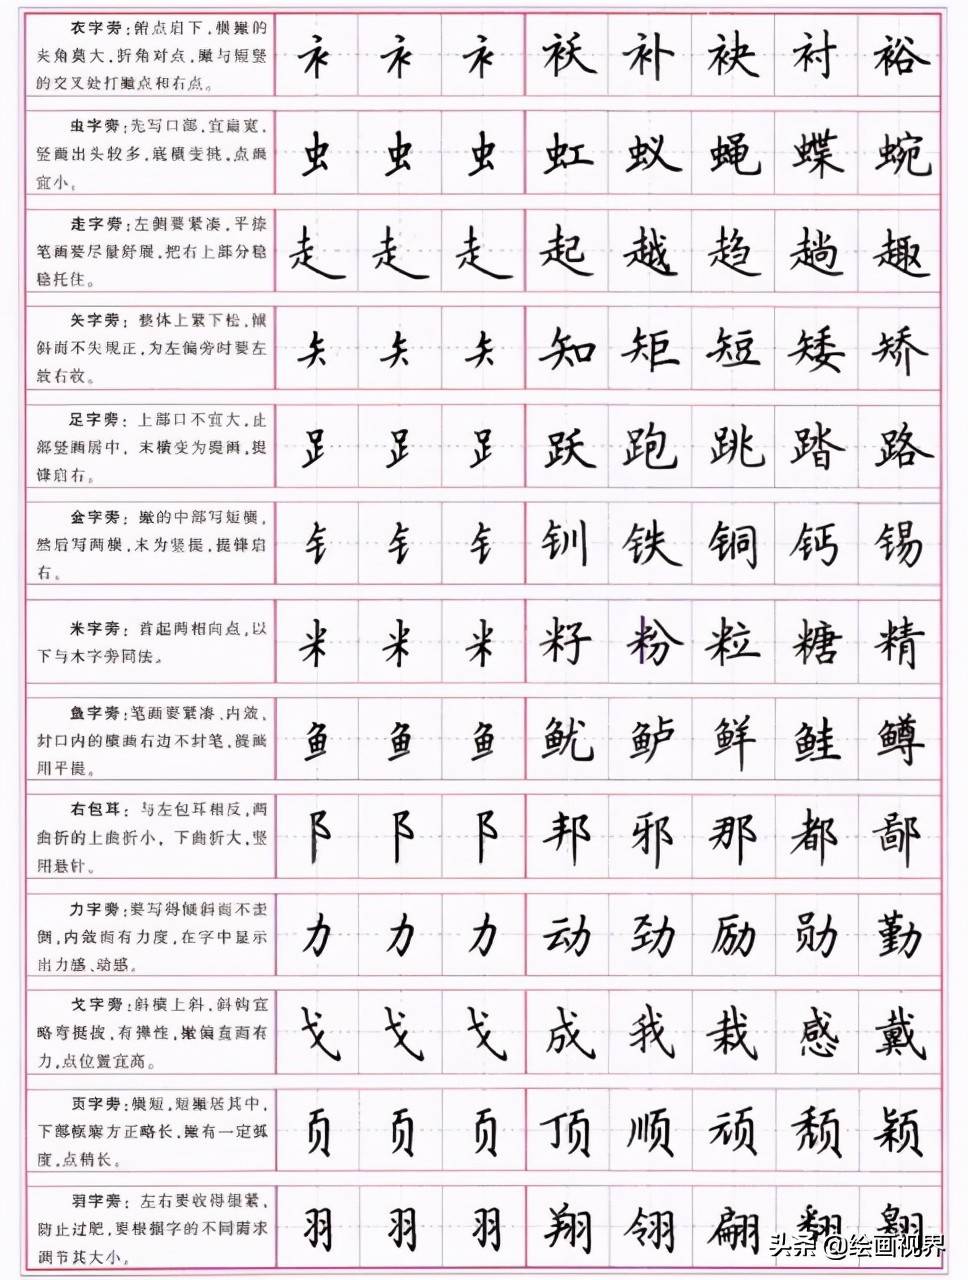 衣字旁：俯点启下，横撇的 衤 衤 衤 袄 补 袂 衬 裕
夹角莫大，折角对点，撇与短竖
的交叉处打撇点和右点。
虫字旁：先写口部，宜扁宽， 虫 虫 虫 虹 蚁 蝇 蝶 蜿
竖画出头较多，底横变挑，点画
宜小。
走字旁：左侧要紧凑，平捺 走 走 走 起 越 趋 趟 趣
笔画要尽量舒展，把右上部分稳
稳托住。
矢字旁：整体上紧下松，倾 矢 矢 矢 知 矩 短 矮 矫
斜而不失规正，为左偏旁时要左
放右收。
足字旁：上部口不宜大，止 𧾷 𧾷 𧾷 跃 跑 跳 踏 路
部竖画居中，末横变为提画，提
锋启右。
金字旁：撇的中部写短横， 钅 钅 钅 钏 铁 铜 钙 锡
然后写两横，末为竖提，提锋启
右。
米字旁：首起两相向点，以 米 米 米 籽 粉 粒 糖 精
下与木字旁同法。
鱼字旁：笔画要紧凑、内敛， 鱼 鱼 鱼 鱿 鲈 鲜 鲑 鳟
封口内的横画右边不封笔，提画
用平提。
右包耳：与左包耳相反，两 阝 阝 阝 邦 邪 那 都 鄙
曲折的上曲折小，下曲折大，竖
用悬针。
力字旁：要写得倾斜而不歪 力 力 力 动 劲 励 勋 勤
倒，内敛而有力度，在字中显示
出力感、动感。
戈字旁：斜横上斜，斜钩宜 戈 戈 戈 成 我 栽 感 戴
略弯挺拔，有弹性，撇偏直而有
力，点位置宜高。
页字旁：横短，短撇居其中， 页 页 页 顶 顺 顽 颓 颖
下部框架方正略长，撇有一定弧
度，点稍长。
羽字旁：左右要收得很紧， 羽 羽 羽 翔 翎 翩 翻 翱
防止过肥，要根据字的不同需求
调节其大小。
头条 @绘画视界